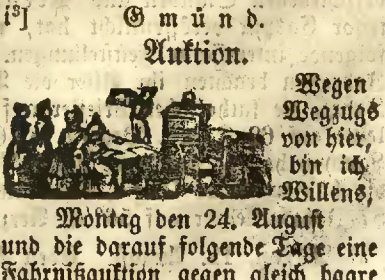 i³]
Gmünd.
Auktion.
Wegen
Wegzugs
von hier,
bin ich
Willens,
Montag den 24. August
und die darauf folgende Tage eine
Fahrnißauktion gegen gleich baare